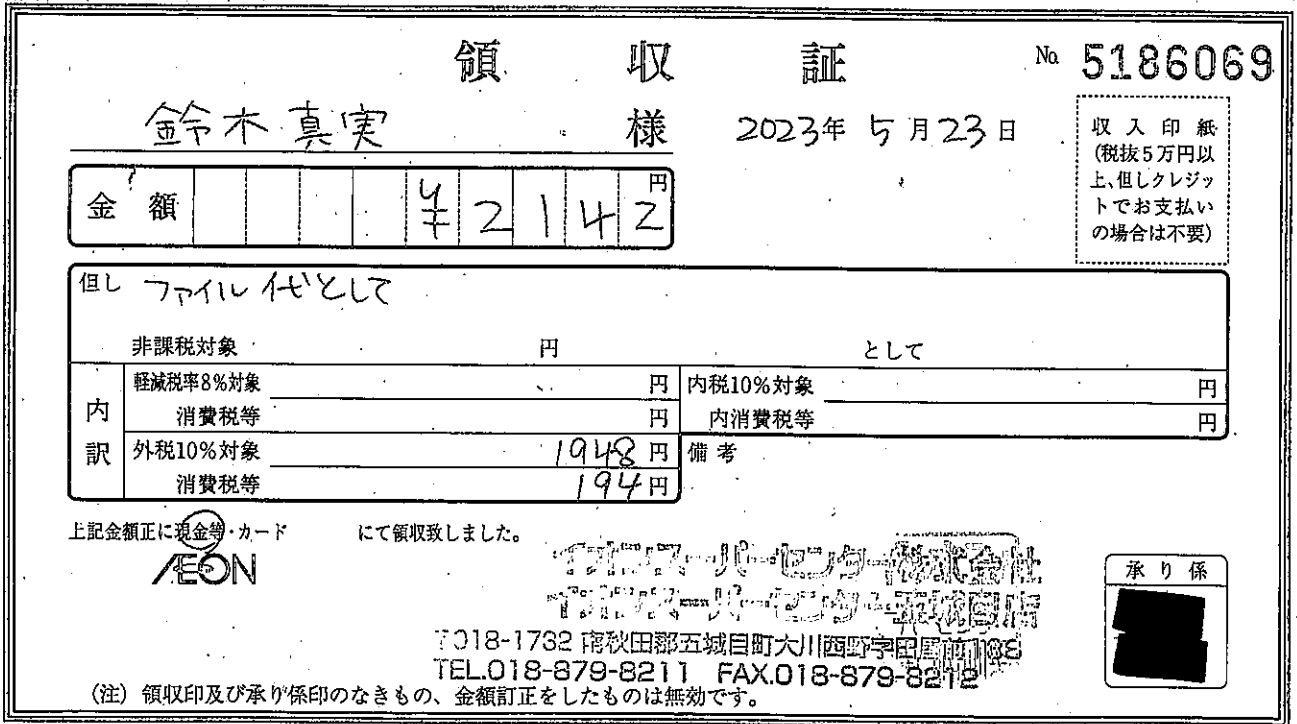 領収証
No. 5186069
鈴木真実 様
2023年 5月23日
収入印紙
(税抜5万円以
上、但しクレジッ
トでお支払い
の場合は不要)
金額 ¥2142円
但し ファイル代として
非課税対象 円 として
内訳
軽減税率8%対象 円
消費税等 円
内税10%対象 円
内消費税等 円
外税10%対象 1948円
消費税等 194円
備考
上記金額正に現金等・カード にて領収致しました。
ÆON
イオンスーパーセンター株式会社
イオンスーパーセンター五城目店
〒018-1732 南秋田郡五城目町大川西野字田屋前188
TEL.018-879-8211 FAX.018-879-8212
承り係
(注) 領収印及び承り係印のなきもの、金額訂正をしたものは無効です。